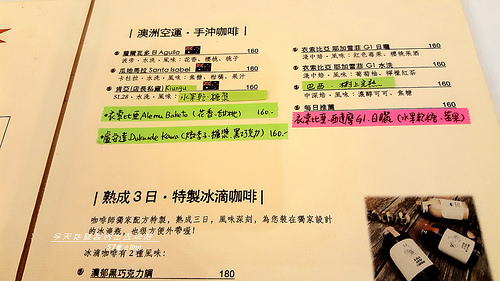 | 澳洲空運・手沖咖啡 |
薩爾瓦多日 Aguila 160
波旁・水洗・風味：花香、櫻桃、桃子
瓜地馬拉 Santa Isabel 160
卡杜拉・水洗・風味：焦糖、柑橘、果汁
肯亞(店長私藏) Kiunyu 160
SL28・水洗・風味：水果乾、糖漿
衣索比亞 Alemu Bukato (花香、甜桃) 160.-
盧安達 Dukunde Kawa (糖漿、黑巧克力) 160.-
衣索比亞 耶加雪菲 G1 日曬 160
淺中焙・風味：紅色莓果、櫻桃果酒
衣索比亞 耶加雪菲 G1 水洗 160
淺中焙・風味：葡萄柚、檸檬紅茶
巴西 160
中深焙・風味：濃醇可可、焦糖
每日推薦 160
衣索比亞・西達摩G1・日曬
| 熟成 3 日・特製冰滴咖啡 |
咖啡師獨家配方特製，熟成三日，風味深刻，為您裝在獨家設計
的冰滴瓶，也很方便外帶喔！
冰滴咖啡有 2 種風味：
濃郁黑巧克力調 180